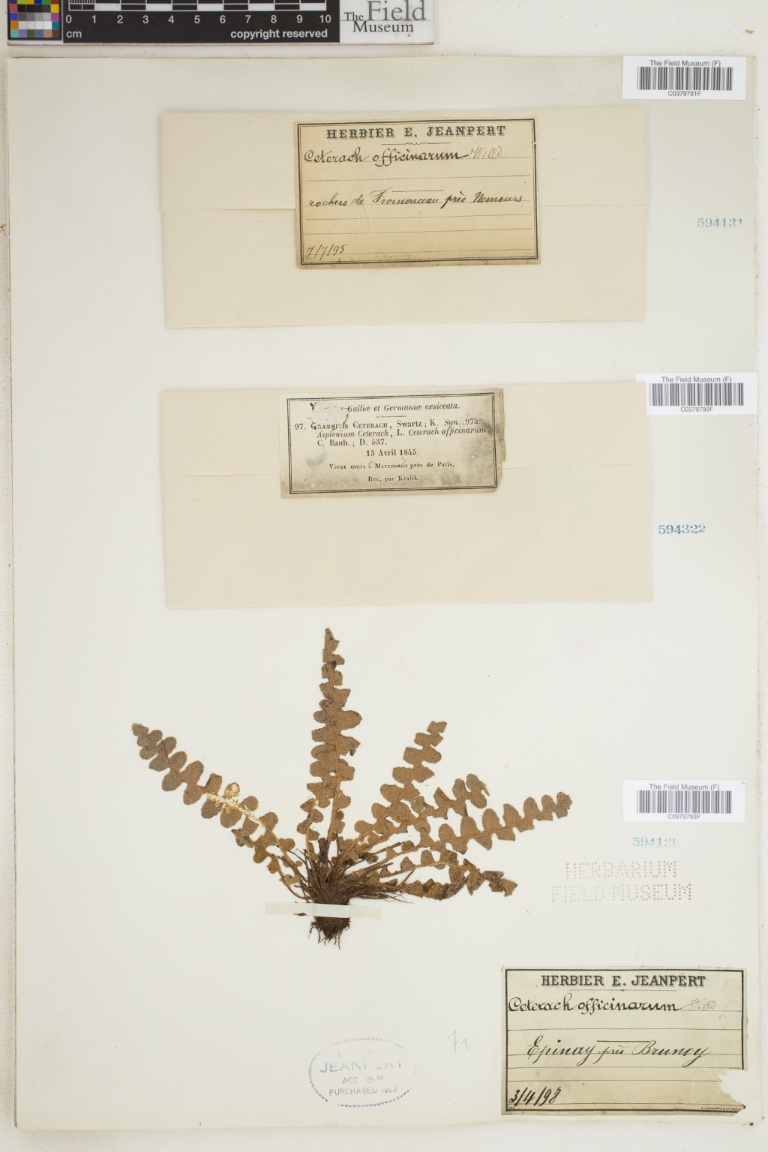 0 1 2 3 4 5 6 7 8 9 10
cm
copyright reserved
The Field
Museum
The Field Museum (F)
C0379791F
HERBIER E. JEANPERT
Ceterach officinarum Willd
rochers de près Nemours
7/7/95
594131
The Field Museum (F)
C0379792F
Galliæ et Germaniæ exsiccata.
97. GRAMMITIS CETERACH, Swartz; K. Syn. 975.
Asplenium Ceterach, L. Ceterach officinarum
C. Bauh.; D. 537.
13 Avril 1845.
Vieux murs à près de Paris,
Rec. par Kralik.
594322
The Field Museum (F)
C0379793F
HERBARIUM
FIELD MUSEUM
HERBIER E. JEANPERT
Ceterach officinarum Willd
Epinay près Brunoy
3/4/98
JEANPERT
PURCHASED